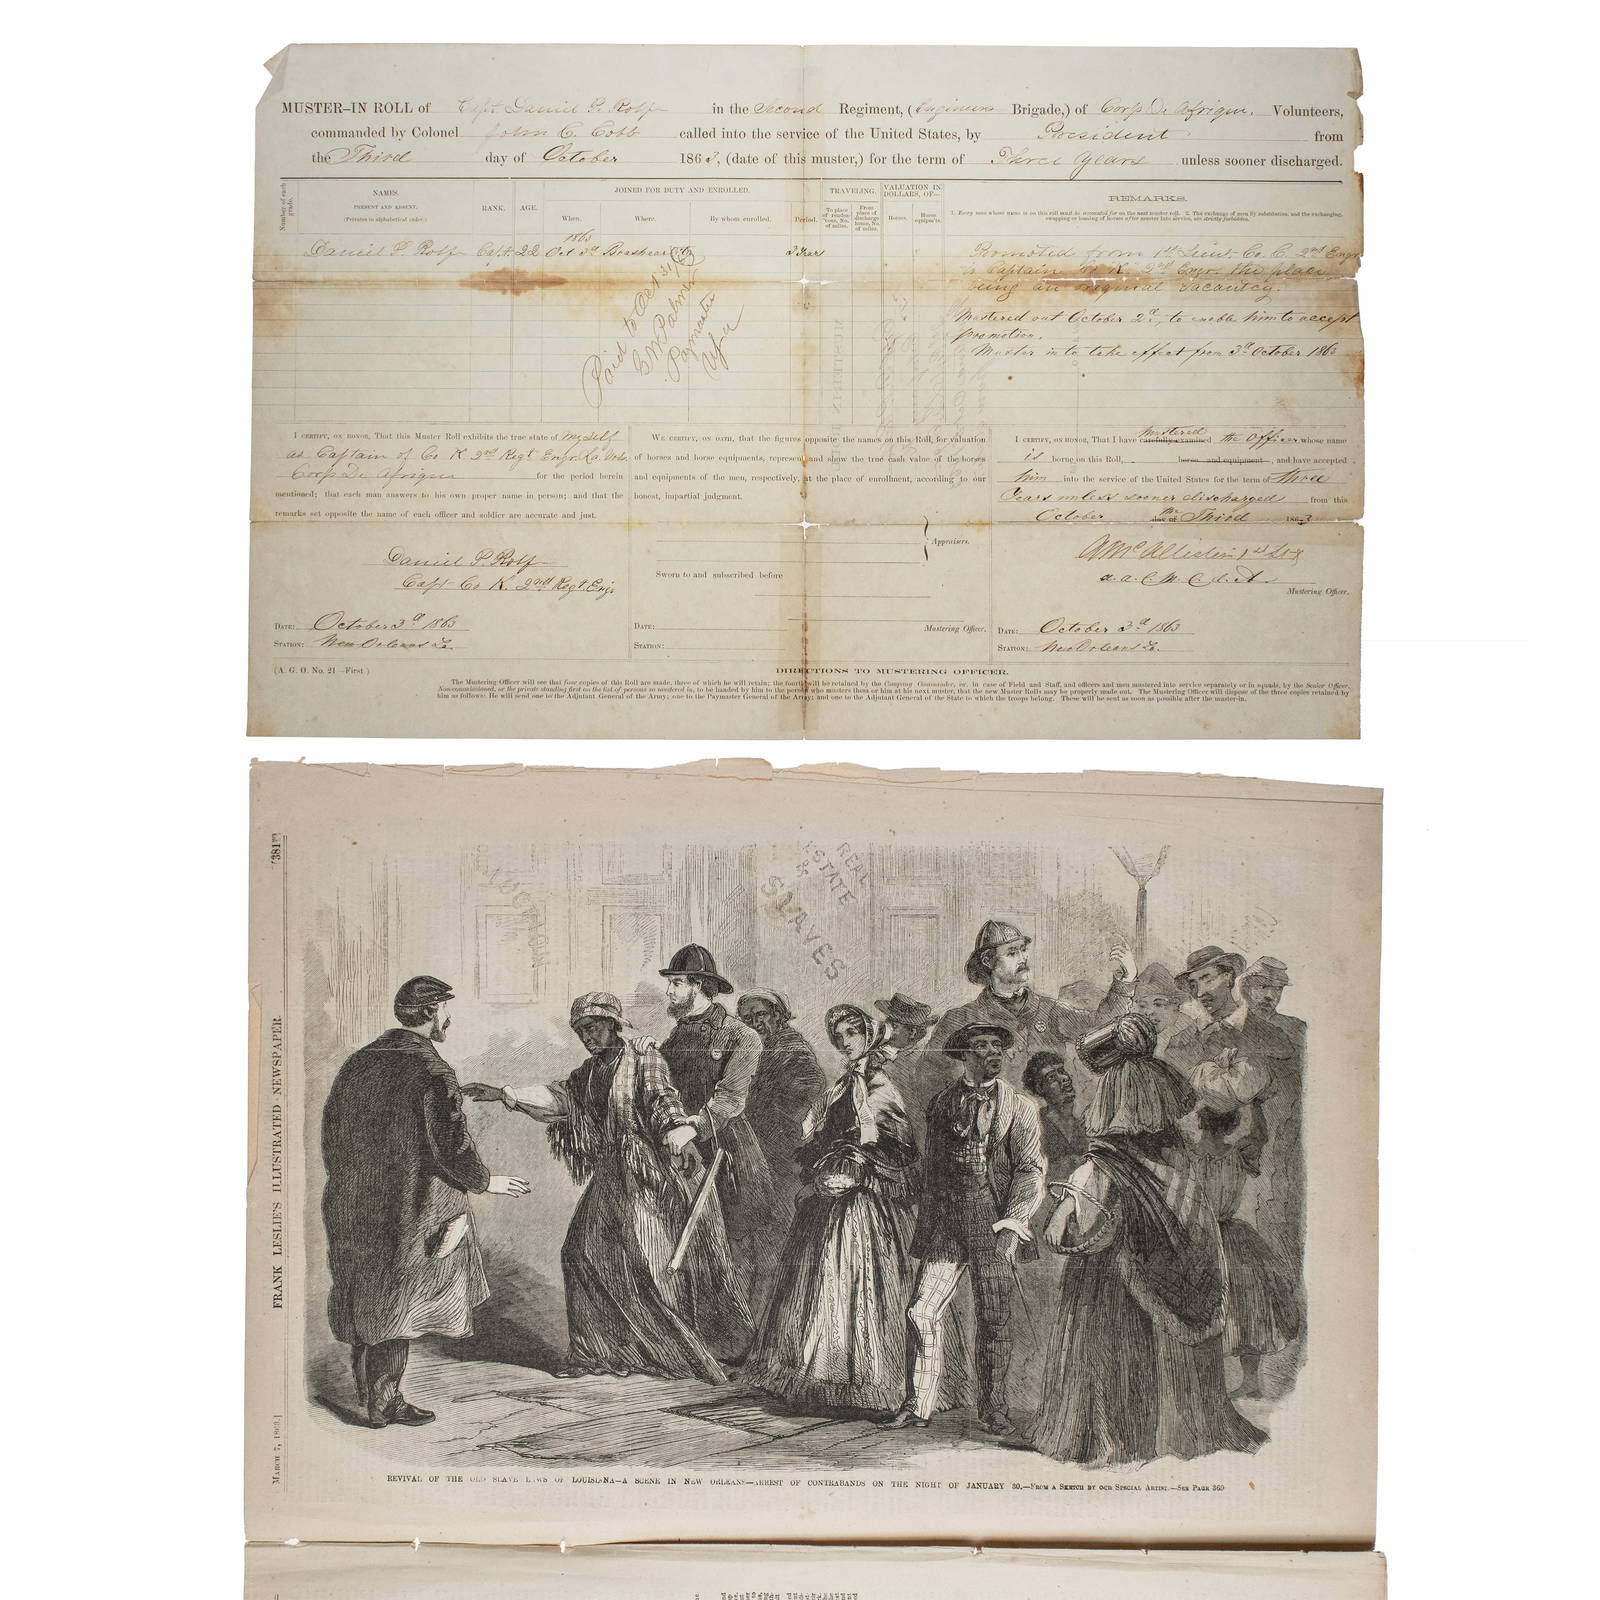 MUSTER-IN ROLL of Capt. Daniel P. Rolf in the Second Regiment, (Engineers Brigade,) of Corp De Afrique. Volunteers,
commanded by Colonel John C. Cobb called into the service of the United States, by President from
the Third day of October 1863, (date of this muster,) for the term of Three Years unless sooner discharged.
Number of each grade.
NAMES.
PRESENT AND ABSENT.
(Privates in alphabetical order.)
RANK.
AGE.
JOINED FOR DUTY AND ENROLLED.
When.
Where.
By whom enrolled.
Period.
TRAVELING.
To place of rendezvous, No. of miles.
From place of discharge home, No. of miles.
VALUATION IN DOLLARS, OF—
Horses.
Horse equipm'ts.
REMARKS.
1. Every man whose name is on this roll must be accounted for on the next muster roll. 2. The exchange of men by substitution, and the exchanging, swapping or loaning of horses after muster into service, are strictly forbidden.
1863
Daniel P. Rolf Capt. 22 Oct 3d Brashear City 3 Years
Promoted from 1st Lieut. Co. C. 2nd Engr.
to Captain Co K. 2nd Engr. the place
being an original vacancy.
Mustered out October 2d, to enable him to accept
promotion.
Muster in to take effect from 3d October 1863
Paid to Oct 31/63
Palmer
Paymaster
I CERTIFY, ON HONOR, That this Muster Roll exhibits the true state of Myself
as Captain of Co K. 2nd Regt Engr. La. Vols.
Corp De Afrique for the period herein
mentioned; that each man answers to his own proper name in person; and that the
remarks set opposite the name of each officer and soldier are accurate and just.
Daniel P. Rolf
Capt Co K. 2nd Regt. Engr
DATE: October 3d 1863
STATION: New Orleans La.
(A. G. O. No. 21—First.)
WE CERTIFY, ON OATH, that the figures opposite the names on this Roll, for valuation
of horses and horse equipments, represent and show the true cash value of the horses
and equipments of the men, respectively, at the place of enrollment, according to our
honest, impartial judgment.
Appraisers.
Sworn to and subscribed before
Mustering Officer.
DATE:
STATION:
I CERTIFY, ON HONOR, That I have carefully examined mustered the Officer whose name
is borne on this Roll, horse and equipment, and have accepted
him into the service of the United States for the term of three
Years unless sooner discharged from this
October the day of Third 1863
A McAllister 1st Lt
a. a. C. M.
Mustering Officer.
DATE: October 3d 1863
STATION: New Orleans La.
DIRECTIONS TO MUSTERING OFFICER.
The Mustering Officer will see that four copies of this Roll are made, three of which he will retain; the fourth will be retained by the Company Commander, or, in case of Field and Staff, and officers and men mustered into service separately or in squads, by the Senior Officer,
Non-commissioned, or the private standing first on the list of persons so mustered in, to be handed by him to the person who musters them or him at his next muster, that the new Muster Rolls may be properly made out. The Mustering Officer will dispose of the three copies retained by
him as follows: He will send one to the Adjutant General of the Army; one to the Paymaster General of the Army; and one to the Adjutant General of the State to which the troops belong. These will be sent as soon as possible after the muster-in.
MARCH 7, 1863.]
FRANK LESLIE'S ILLUSTRATED NEWSPAPER.
381
AUCTION
REAL
ESTATE
&
SLAVES
REVIVAL OF THE OLD SLAVE LAWS OF LOUISIANA—A SCENE IN NEW ORLEANS—ARREST OF CONTRABANDS ON THE NIGHT OF JANUARY 30.—FROM A SKETCH BY OUR SPECIAL ARTIST.—SEE PAGE 369